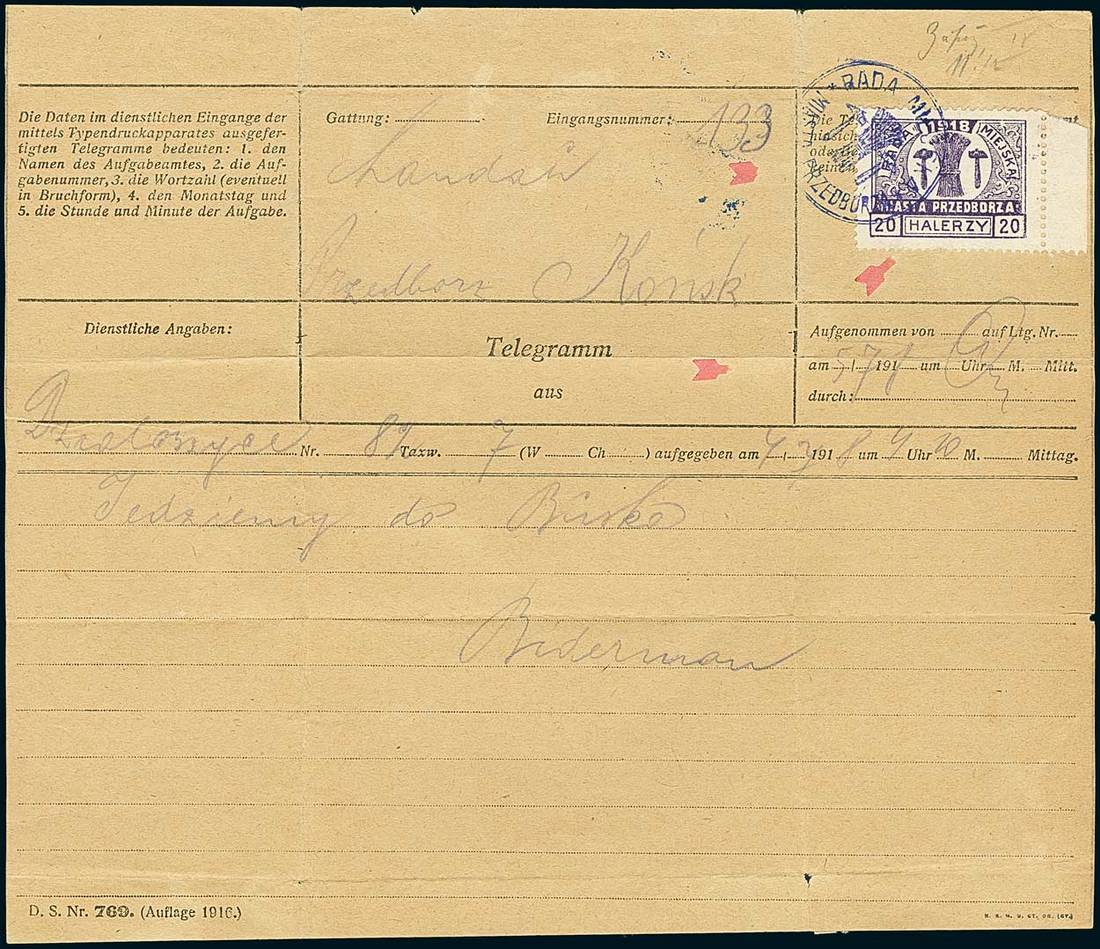 Die Daten im dienstlichen Eingange der
mittels Typendruckapparates ausgefer-
tigten Telegramme bedeuten: 1. den
Namen des Aufgabeamtes, 2. die Auf-
gabenummer, 3. die Wortzahl (eventuell
in Bruchform), 4. den Monatstag und
5. die Stunde und Minute der Aufgabe.
Gattung:
Eingangsnummer: 133
Landau
Przedborz Końsk
RADA
1918
RADA MIEJSKA
MIASTA PRZEDBORZA
20 HALERZY 20
Dienstliche Angaben:
Telegramm
aus
Aufgenommen von auf Ltg. Nr.
am 5/7 191 um Uhr M. Mitt.
durch:
Nr. 89 Taxw. 7 (W Ch ) aufgegeben am 191 8 um Uhr M. Mittag.
Jedziemy do Buska
Biderman
D. S. Nr. 769. (Auflage 1916.)